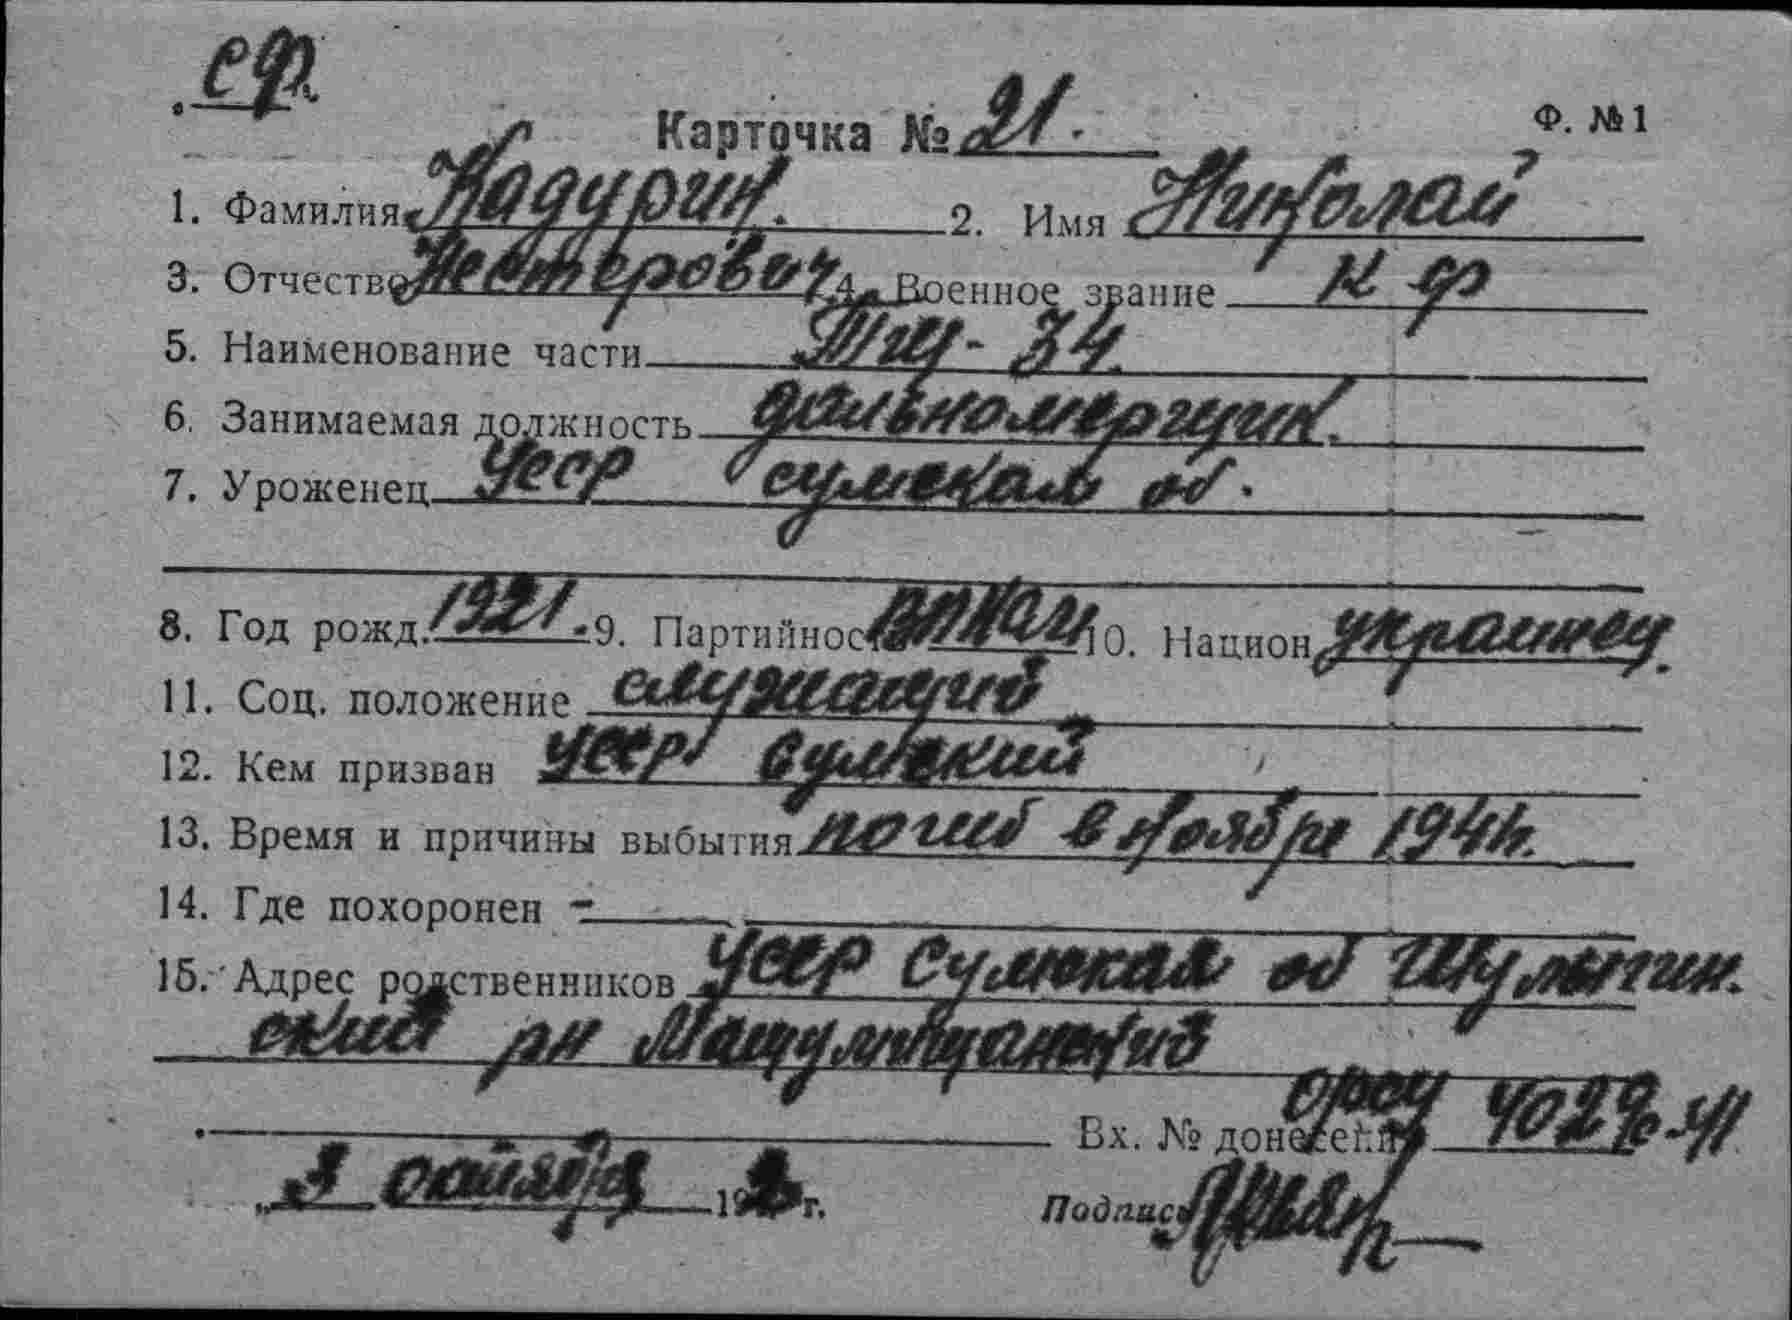 сф.
Карточка № 21. Ф. №1
1. Фамилия Надурин. 2. Имя Николай
3. Отчество Петрович 4. Военное звание К Ф
5. Наименование части ТЩ-34.
6. Занимаемая должность дальномерщик.
7. Уроженец УССР Сумская об.
8. Год рожд. 1921. 9. Партийнос 10. Национ украинец.
11. Соц. положение служащий
12. Кем призван УССР Сумский
13. Время и причины выбытия погиб в ноябре 1944.
14. Где похоронен -
15. Адрес родственников УССР Сумская об
ский рн
Вх. № донесения
3 октября 19 г. Подпись